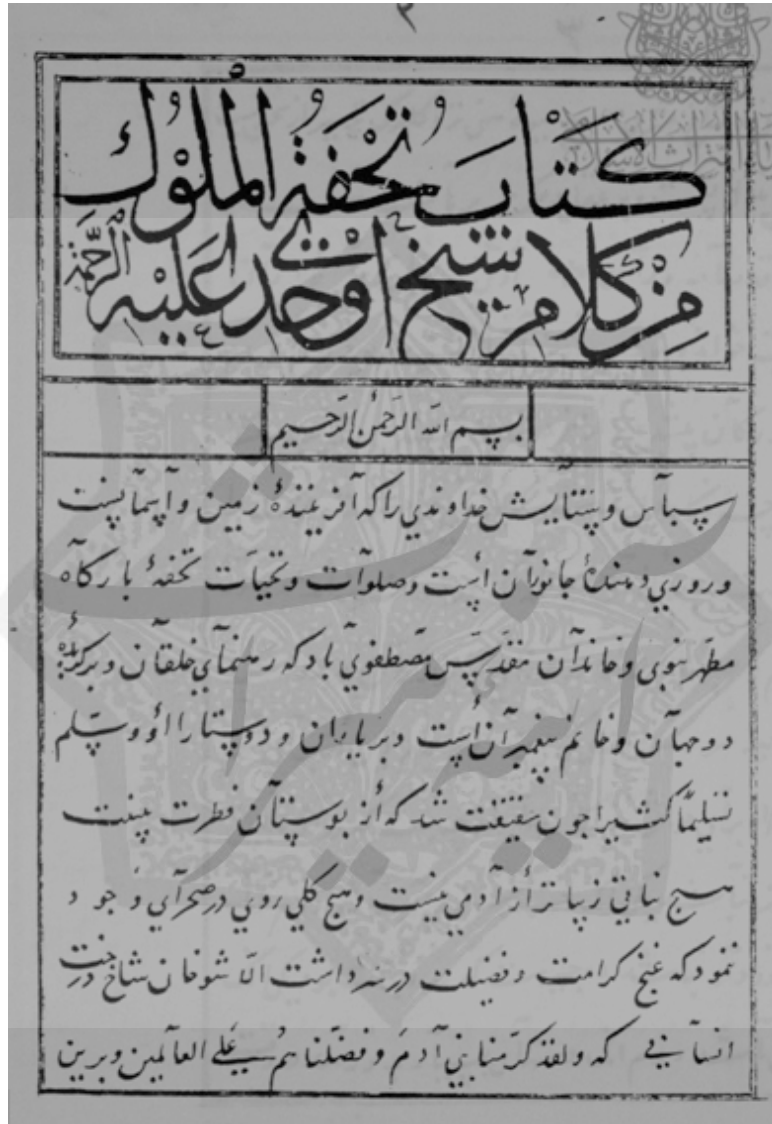 ۲
كتاب تحفة الملوك
من كلام شيخ اوحدى عليه الرحمة
بسم الله الرحمن الرحيم
سپاس وستايش خداوندي را كه آفرينندهٔ زمين وآسمانست
وروزي دهندهٔ جانوران است وصلوات وتحيات تحفهٔ باركاه
مطهر نبوى وخاندان مقدس مصطفوي باد كه رهنماي خلقان وبركزيدهٔ
دوجهان وخاتم پيغمبران است وبرياران ودوستاران او وسلم
تسليما كثيرا جون حقيقت شد كه از بوستان فطرت
هيچ نباتي زيباتر از آدمي نيست وهيچ كلي روي در صحراي وجود
ننمود كه غنچ كرامت وفضيلت در سر داشت الا شاخ درخت
انساني كه ولقد كرمنا بني آدم وفضلناهم على العالمين وبرين